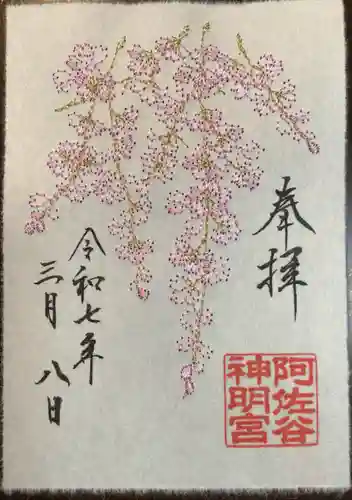 奉拝
阿佐谷
神明宮
令和七年
三月八日